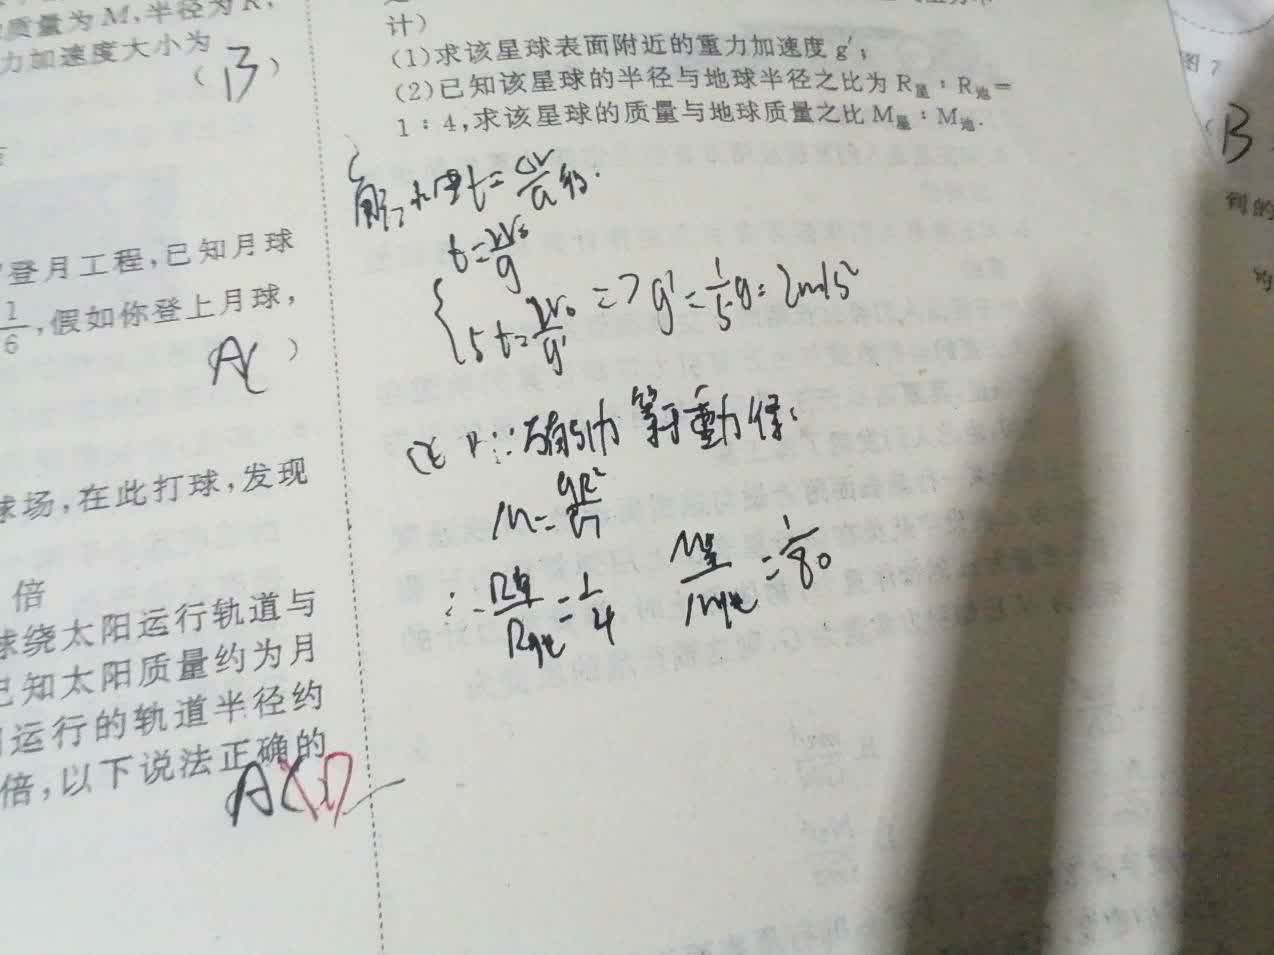 质量为M,半径为R,
力加速度大小为
( B )
登月工程,已知月球
1/6,假如你登上月球,
AC )
球场,在此打球,发现
倍
球绕太阳运行轨道与
已知太阳质量约为月
运行的轨道半径约
倍,以下说法正确的
ACD
计)
(1)求该星球表面附近的重力加速度g′;
(2)已知该星球的半径与地球半径之比为R星:R地=
1:4,求该星球的质量与地球质量之比M星:M地.
t=2v₀/g
5t=2v₀/g′ => g′=1/5g=2m/s²
M=gR²/G
∴R星/R地=1/4 M星/M地=1/80
图7
B
到的